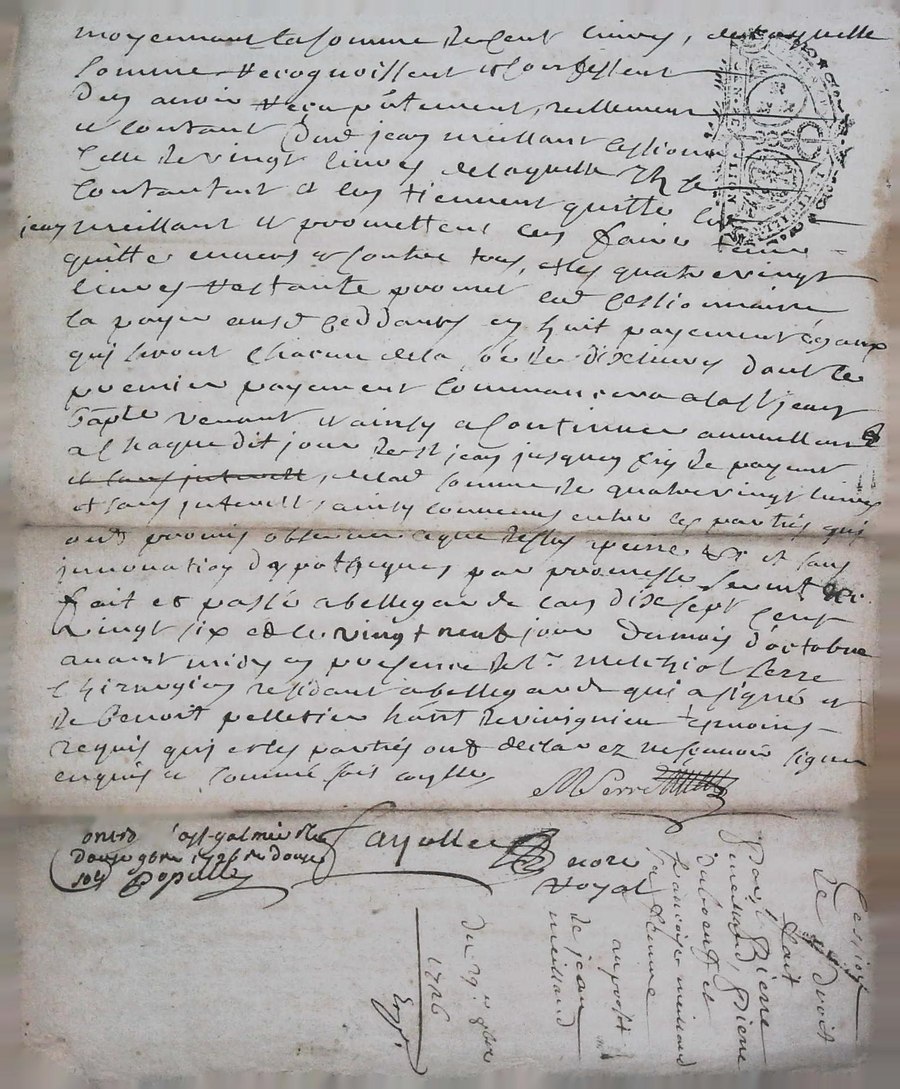 moyennant la somme de cent livres, de laquelle
somme recognoissent et confessent
den avoir reçu pntement, reellement
et contant dud jean meillant cessionn
celle de vingt livres de laquelle
contantant et len tiennent quitte led
jean meillant et promettent len faire tenir
quitte envers et contre tous, et les quatre vingt
livres restante promet led cessionnaire
la payer ausd ceddants en huit payement esgaux
qui seront chacun de la so^e de dix livres dont le
premier payement commancera a la st jean
bapte venant et ainsy a continuer annuellem^t
a chaque dit jour de st jean jusques fin de payem^t
et sans interest, de lad somme de quatre vingt livres
et sans interest, ainsy convenus entre les parties qui
ont promis observer ce que dessus peine &c et sans
innovation dypotheques par promesse serment &c
fait et passé a bellegarde lan dix sept cent
vingt six et le vingt neuf jour du mois d'octobre
avant midy en presence de s^r melchiol serre
chirurgien residant a bellegarde qui a signé et
de benoit pelletier hănt de virignieu tesmoins
requis qui et les parties ont declarez ne sçavoir signer
enquis et sommé
MSerre
Fayolle
nore
royal
1726 re douze
sols Populle
Cession
de droit
fait
par Pierre
meilland, Pierre
dubourg et
francoise meilland
sa femme
au profit
de jean
meilland
du 29^e 8bre
1726
Exp^r